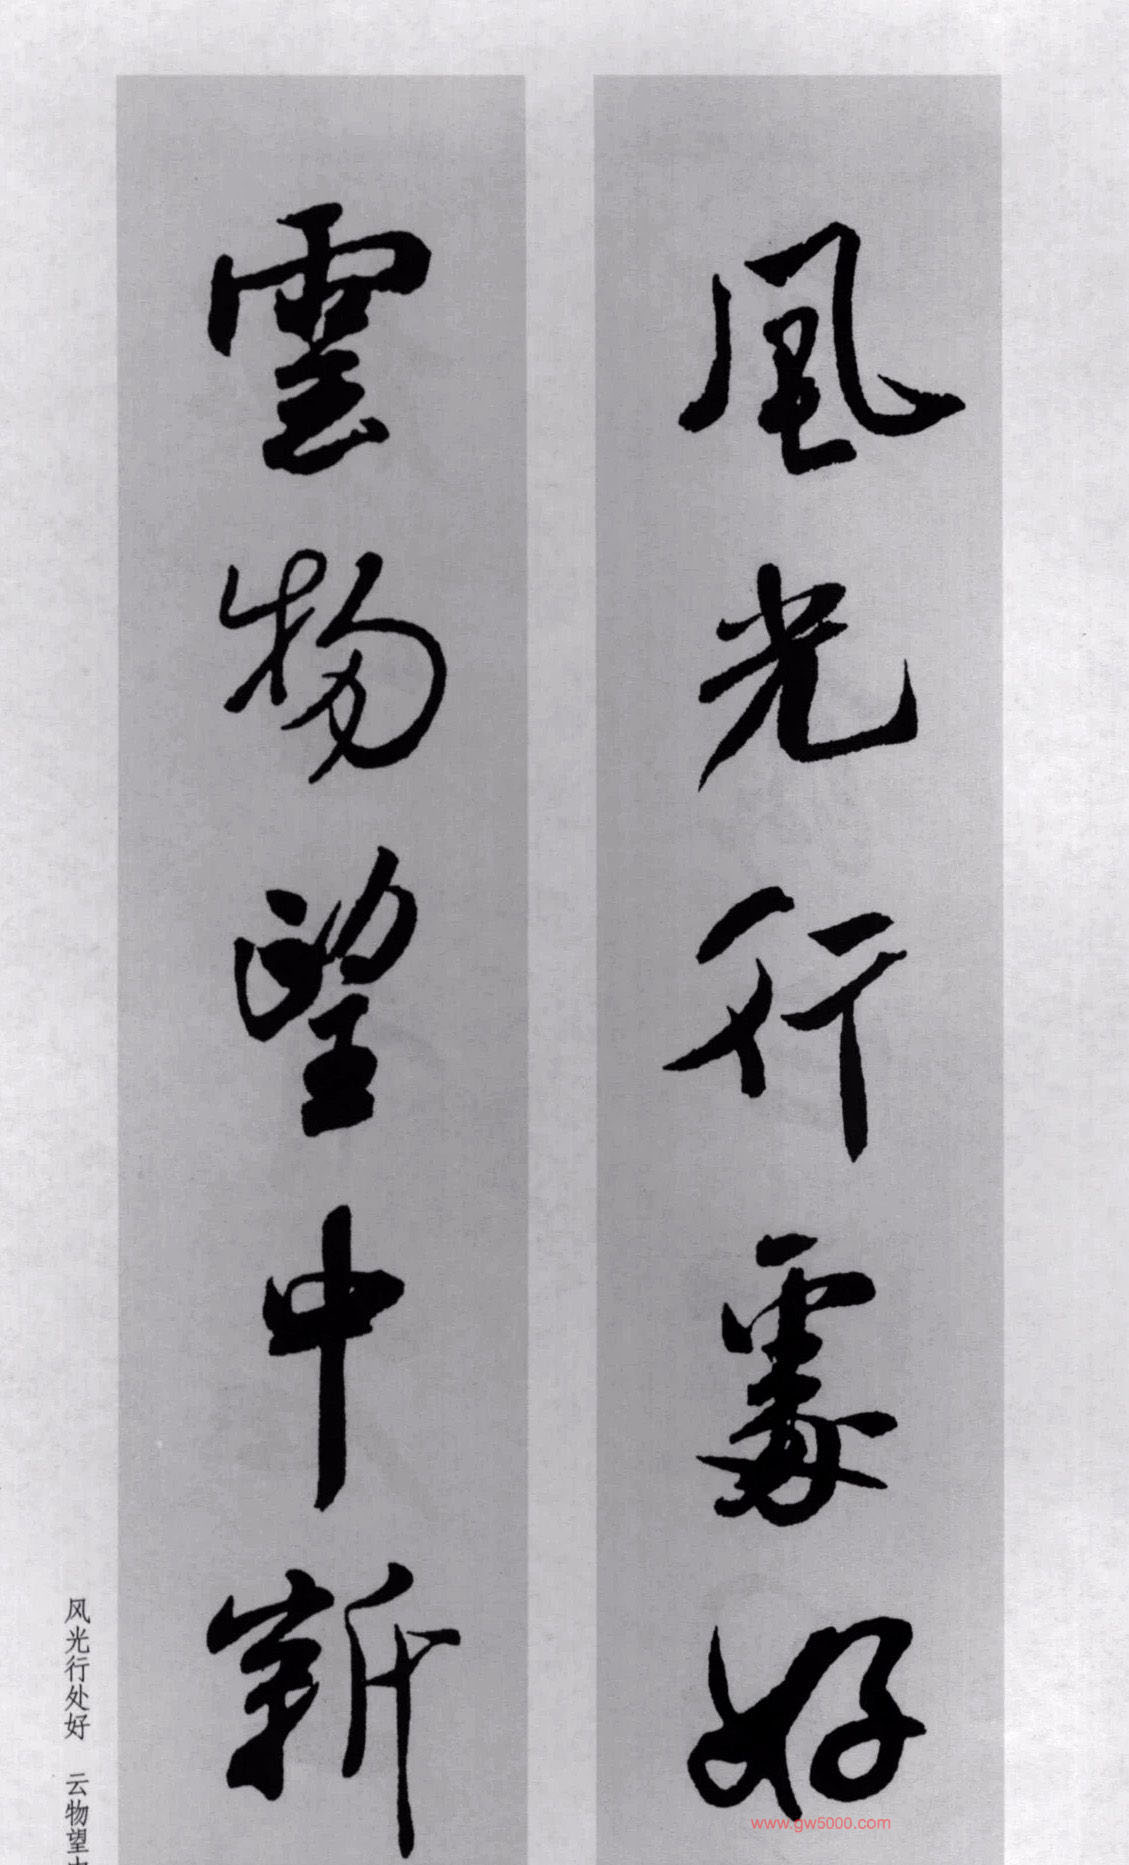 風光行處好
雲物望中新
风光行处好 云物望
www.gw5000.com